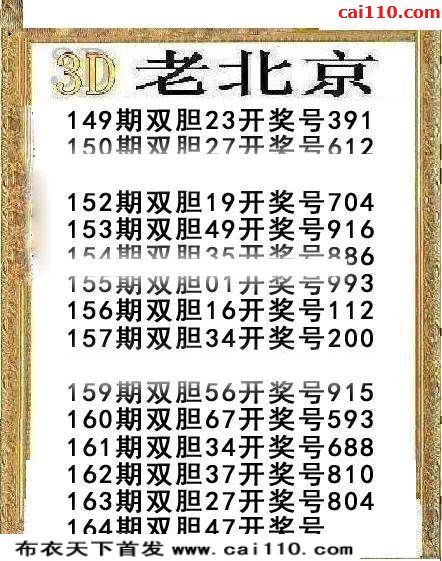 cai110.com
3D 老北京
149期双胆23开奖号391
150期双胆27开奖号612
152期双胆19开奖号704
153期双胆49开奖号916
154期双胆35开奖号886
155期双胆01开奖号993
156期双胆16开奖号112
157期双胆34开奖号200
159期双胆56开奖号915
160期双胆67开奖号593
161期双胆34开奖号688
162期双胆37开奖号810
163期双胆27开奖号804
164期双胆47开奖号
布衣天下首发 www.cai110.com